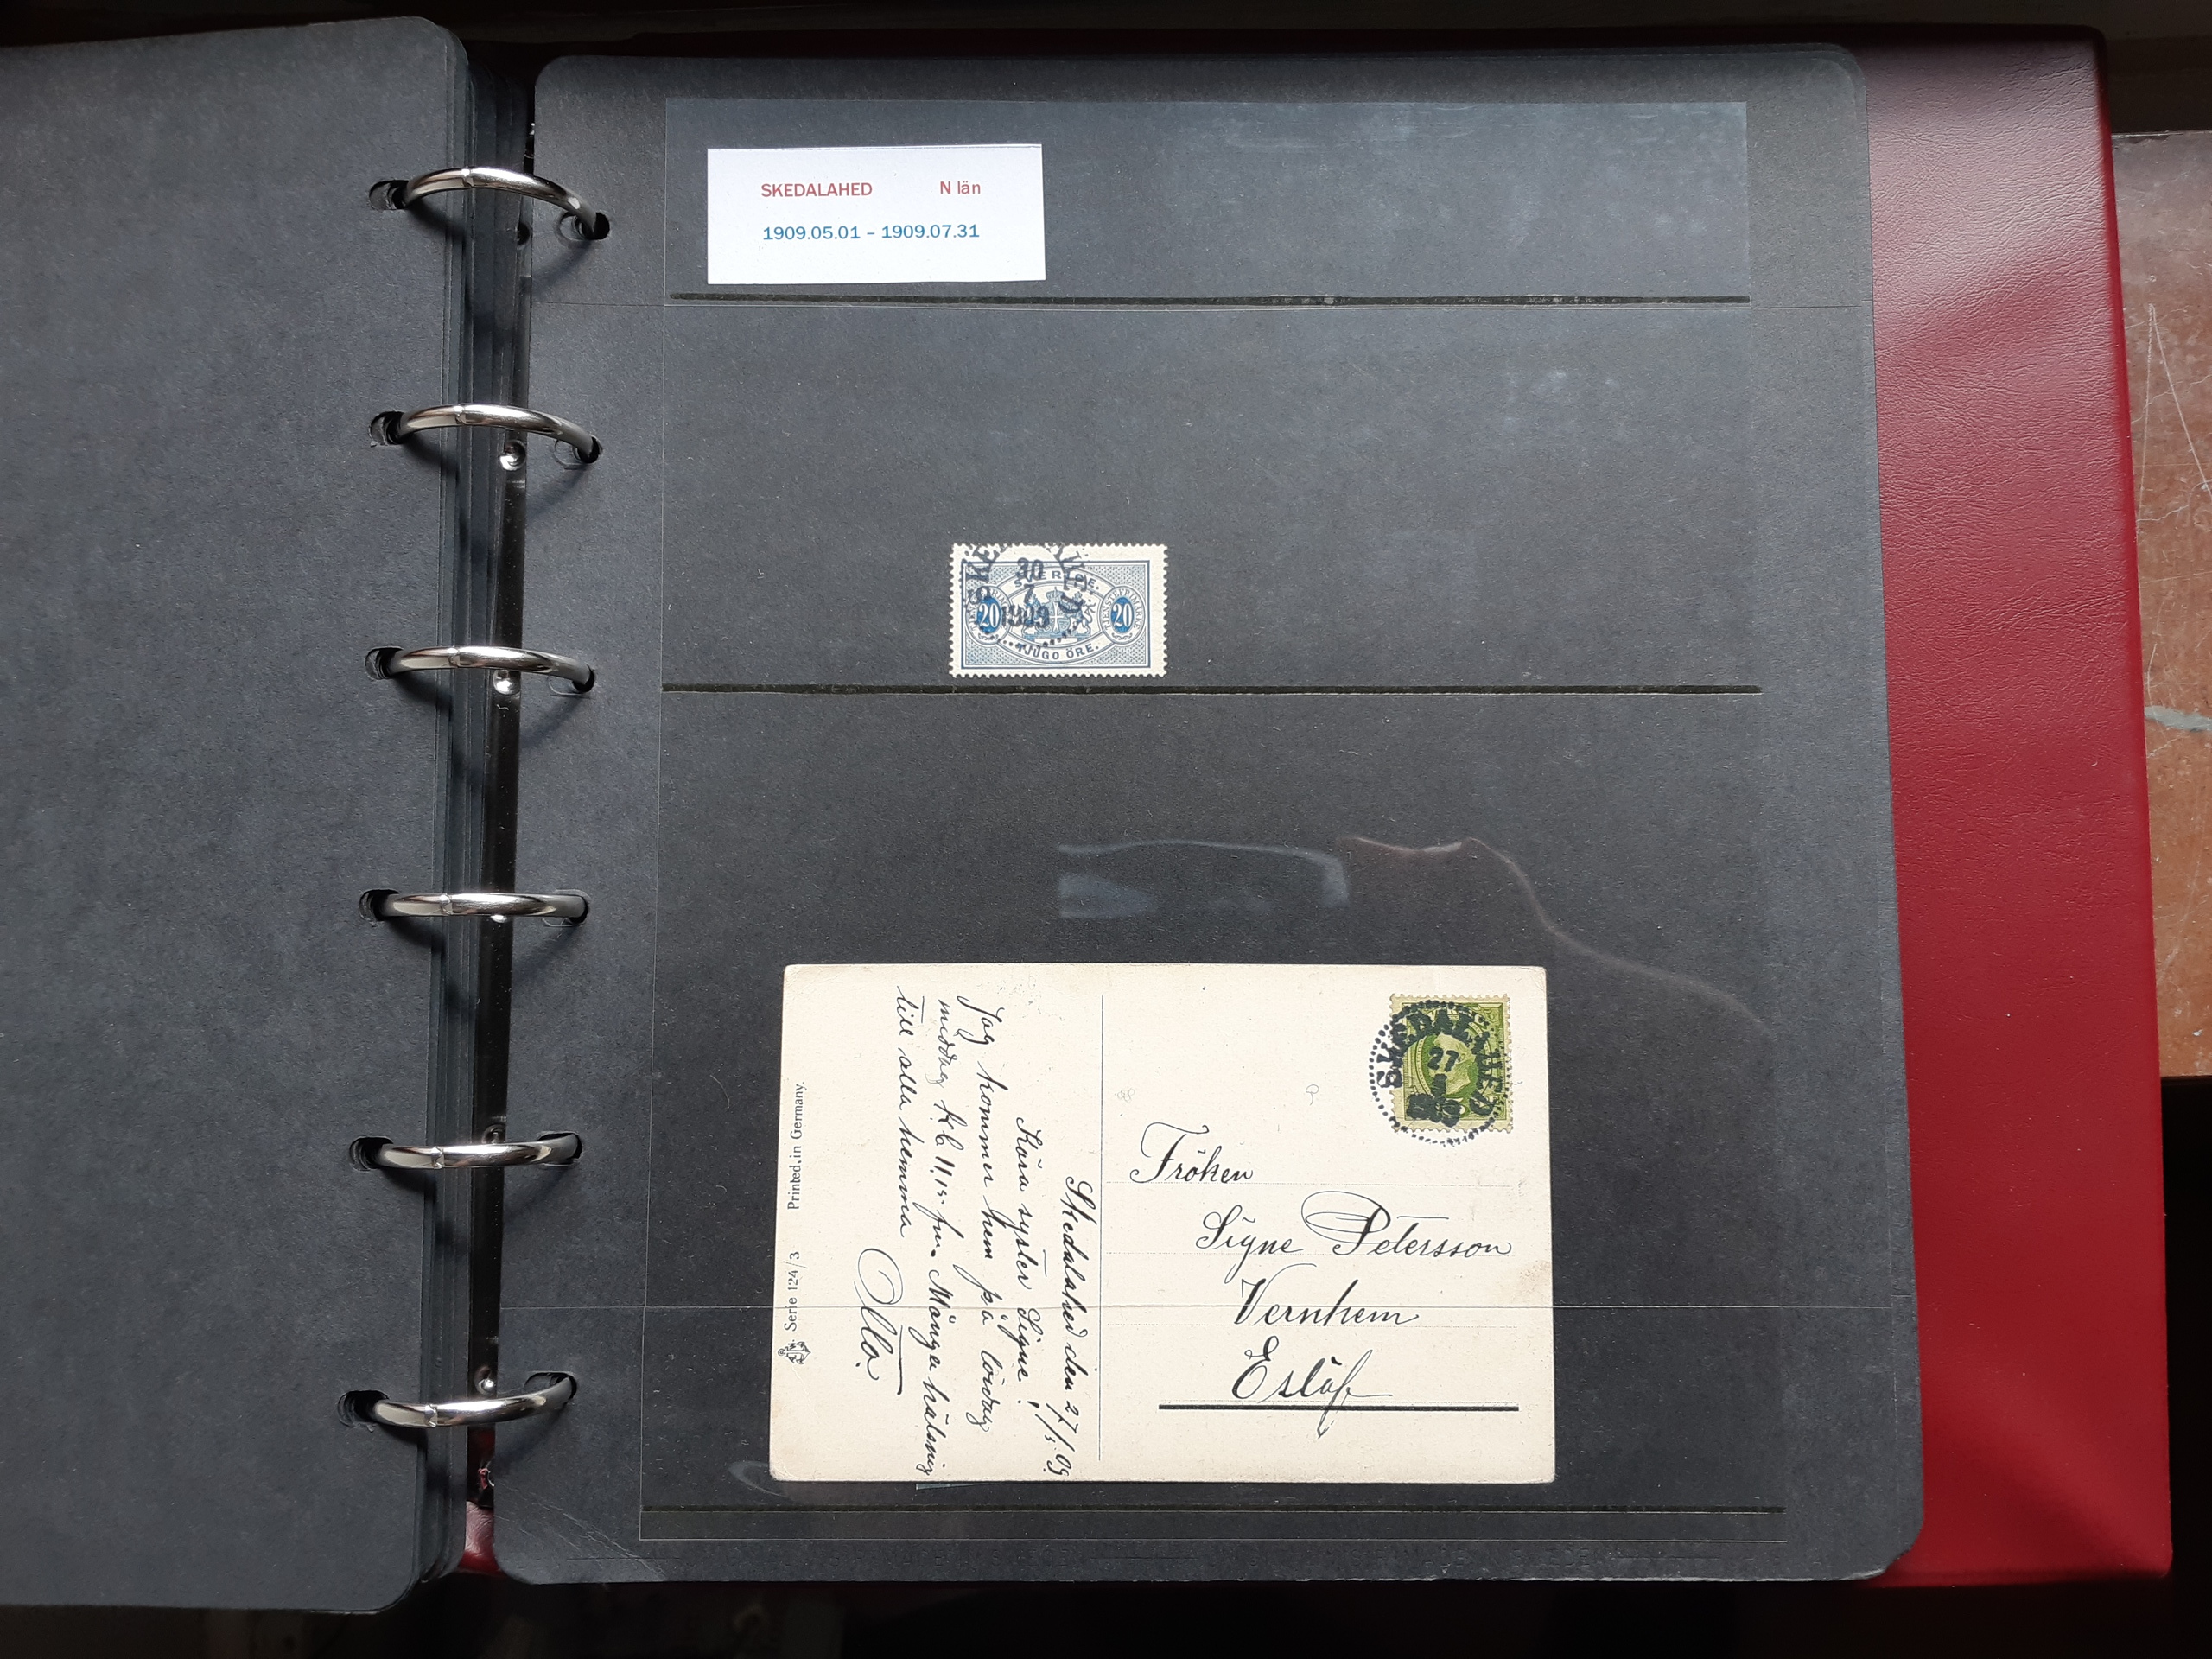 SKEDALAHED N län
1909.05.01 – 1909.07.31
SKE
30
7
1909
SVERIGE.
20 20
TJUGO ÖRE.
SKEDALAHED
27
Fröken
Signe Petersson
Vernhem
Eslöf
Skedalahed den 27/5 09
Kära syster Signe!
Jag kommer hem på lördag
middag kl 11,15 fm. Många hälsning
till alla hemma
Otto.
Serie 124/3 Printed in Germany.